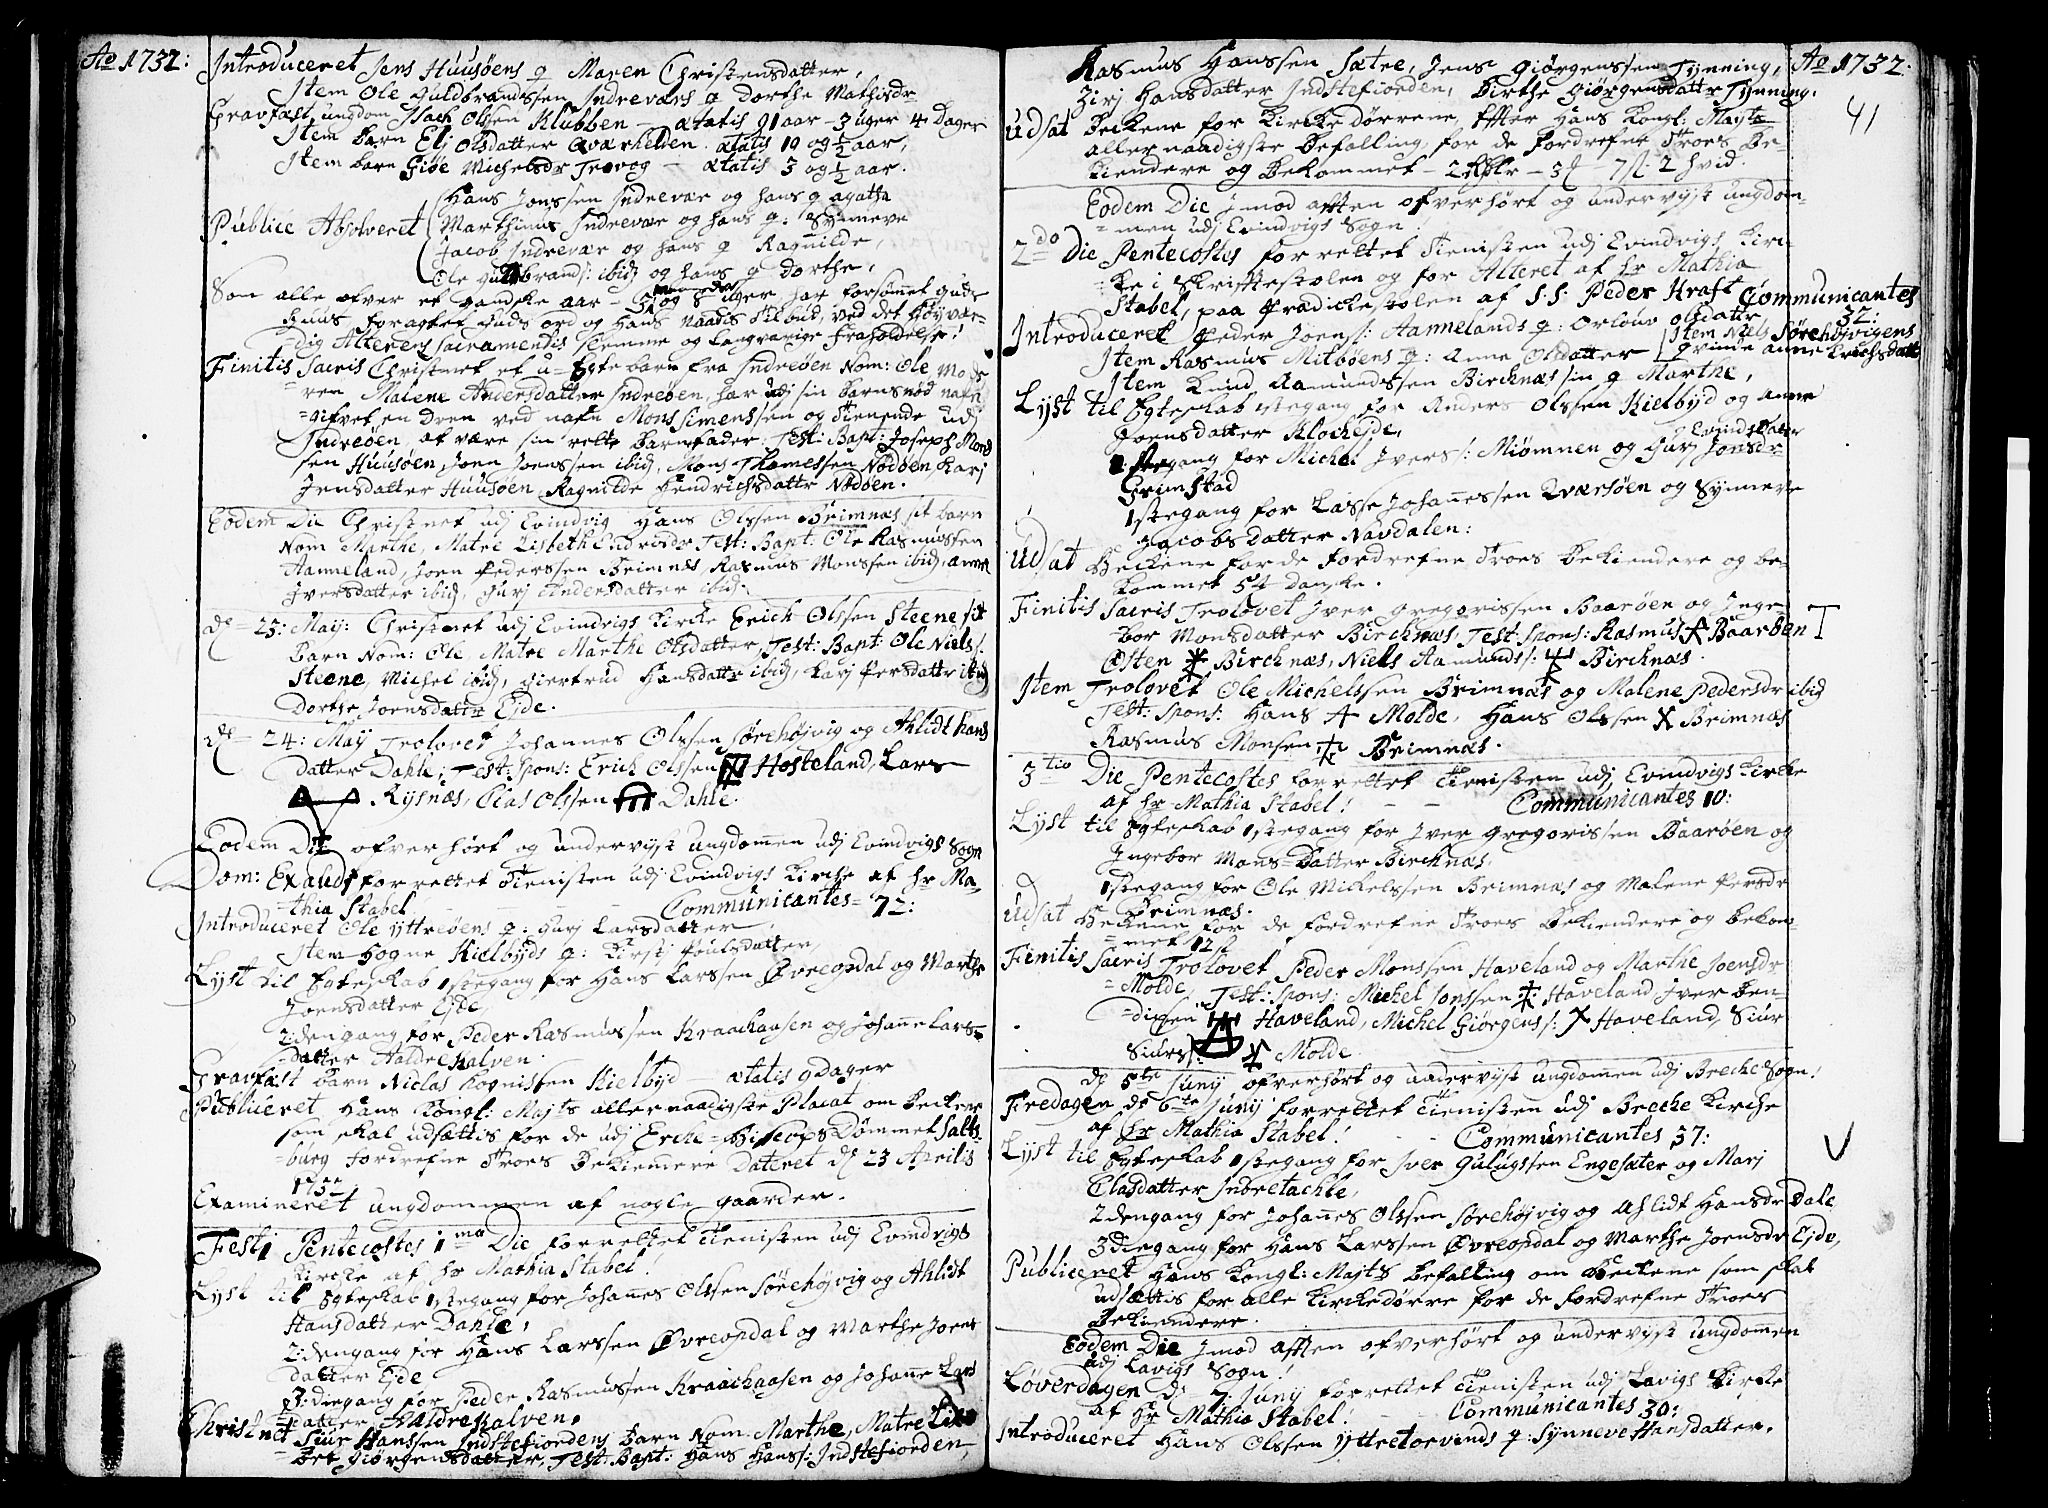 Ao 1732:
Introduceret Jens Huusøens q Maren Christensdatter,
Item Ole Guldbrandssen Indreværs q Dorthe Mathisdr
Gravfæst ungdom Isach Olsen Klubben — ætatis 91 aar - 3 uger 4 Dager
Item barn Elj Olsdatter Qværhelden. ætatis 10 og ½ aar,
Item barn Giøe Michelsdr — ætatis 3 og ½ aar.
Hans Jonssen Indrevær og hans q agatha
Publice Absolveret Marthinus Indrevær og hans q: Synneve
Jacob Indrevær og hans q Ragnilde,
Ole Guldbrands: ibid og hans q dorthe,
Som alle ofver et gandske aar - og 8 uger har forsømet guds
Huus, foragtet guds ord og hans naadis tilbud, ved det Høyvær-
dig Alterens sacramentis slemme og Langvarige fraholdelse!
Finitis Sacris Christnet et u-Egte barn fra Indreøen Nom: Ole, mode
ren Malene Andersdatter Indreøen, har udj sin barnsnød nafn
=gifvet en dren ved nafn Mons Simenssen og Tienende udj
Indreøen, at være sin rette barnfader. Test: Bapt: Joseph Mons
sen Huusøen, Jonn Joenssen ibid, Mons Thomessen Nødøen, Karj
Jensdatter Huusøen Ragnilde Hendrichsdatter Nødøen.
Eodem Die Christnet udj Evindvig Hans Olssen Brimnæs sit barn
Nom Marthe, Matre Lisbeth Endrisdr Test: Bapt: Ole Rasmussen
Aanneland, Joen Pederssen Brimnæs, Rasmus Monssen ibid, anne
Iversdatter ibid, gurj Andersdatter ibid.
de 23: Maij: Christnet udj Evindvigs Kirke Erich Olssen Steene sit
Barn Nom: Ole, Matre Marthe Olsdatter, Test: Bapt Ole Niels:
Steene, Michel ibid, giertrud Hansdatter ibid, Karj Persdatter ibid
Dorthe Joensdatter Ejde.
de 24: Maij Trolovet Johannes Olssen Sørehøjvig og Ahlidt hans
datter Dahle; Test: Spons: Erich Olssen Hosteland, Lars
Rysnæs, Clas Olssen Dahle.
Eodem Die ofverhørt og undervist ungdomen udj Evindvigs Sogn
Dom: Exaudi forrettet Tienisten udj Evindvigs Kirche af hr Ma-
thia Stabel — Communicantes - 72:
Introduceret Ole Yttreøens q: gurj Larsdatter
Item Hogne Kielbyds q: Kirstj Poulsdatter,
Lyst til Egteskab 1stegang for Hans Larssen Øvreopdal og Marthe
Joensdatter Ejde,
2dengang for Peder Rasmussen Kraachaasen og Johanne Lars-
datter Haldrehalven.
Gravfæst barn Niclas Hognissen Kielbyd ætatis 9 dager
Publiceret Hans Kongl: Majts allernaadigste Placat om Becker
som skal udsættis for de udj Erche-Biscops Dømmet Salts-
burg fordrefne Troes Bekiendere Dateret d 23 Aprilis
1732
Examineret ungdommen af nogle gaarder.
Festj Pentecostes 1ma Die forrettet Tienisten udj Evindvigs
Kirche af hr Mathia Stabel!
Lyst til Egteskab 1stegang for Johannes Olssen Sørehøjvig og Ahlidt
Hansdatter Dahle,
2:dengang for Hans Larssen Øvreopdal og Marthe Joens
datter Ejde
3:diegang for Peder Rasmussen Kraachaasen og Johanne Lars
datter Haldrehalven.
Christnet Siur Hanssen Indstefiordens barn Nom: Marthe, Matre Lisa
bet Giørgensdatter, Test: Bapt: Hans Hans: Indstefiorden,
Ao 1732.
41
Rasmus Hanssen Sætre, Jens Giørgenssen Tynning,
Zirj Hansdatter Indstefiorden, Birthe Giørgensdatter Tynning.
Udsat Beckene for Kirckedørrene, Efter Hans Kongl: Mayts
allernaadigste Befalling, for de fordrefne Troes Be-
kiendere og Bekommet - 2 Rdlr - 3 - 7 2 hvid.
Eodem Die Imod aften ofverhørt og undervist ungdom-
=men udj Evindvigs Sogn
2do Die Pentecostes forrettet Tienisten udj Evindvigs Kir-
=ke i Skriftestolen og for Alteret af hr Mathia
Stabel, paa Prædickestolen af S:S: Peder Kraft Communicantes
32:
Introduceret Peder Joens: Aannelands q: Orlouv Olsdatter
Item Niels Sørehøjvigens
qvinde anne Erichsdatter
Item Rasmus Mitbøens q: Anne Olsdatter
Item Knud Aamundssen Birchnæs sin q Marthe,
Lyst til Egteskab 1stegang for Anders Olssen Kielbyd og Anne
Joensdatter Klochejde,
1stegang for Michel Ivers: Miømnen og Gurj Jonsdr
Evindsdatter
Grimstad
1stegang for Lasse Johanessen Qværsøen og Synneve
Jacobsdatter Navdalen:
Udsat Beckene for de fordrefne Troes Bekiendere og be-
kommet 54 danske.
Finitis Sacris Trolovet Iver Gregorissen Baarøen og Inge-
bor Monsdatter Birchnæs, Test: Spons: Rasmus Baarøen
T
Østen Birchnæs, Niels Aamunds: Birchnæs.
Item Trolovet Ole Michelssen Brimnæs og Malene Pedersdr ibid
Test: Spons: Hans Molde, Hans Olssen Brimnæs
Rasmus Monsen Brimnæs.
3tio Die Pentecostes forrettet Tienisten udj Evindvigs Kirke
af hr Mathia Stabel! — Communicantes 10:
Lyst til Egteskab 1stegang for Iver Gregorissen Baarøen og
Ingebor Mons-Datter Birchnæs.
1stegang for Ole Mickelssen Brimnæs og Malene Persdr
Brimnæs.
Udsat Beckene for de fordrefne Troes Bekiendere og bekom-
=met 12
Finitis Sacris Trolovet Peder Monssen Haveland og Marthe Joensdr
=Molde, Test: Spons: Michel Jonssen Haveland, Iver Ben-
=dixen Haveland, Michel Giørgens: Haveland, Siur
Siurs: Molde.
d 5te Junij ofverhørt og undervist ungdommen udj Breche Sogn!
Fredagen de 6te Junij forrettet Tienisten udj Breche Kirche
af hr Mathia Stabel! — Communicantes 37:
V
Lyst til Egteskab 1stegang for Iver Gulugssen Engesæter og Marj
Clasdatter Indretachle,
2dengang for Johannes Olssen Sørehøjvig og Ahlidt Hansdr Dale
3diegang for Hans Larssen Øvreopdal og Marthe Joensdr Ejde,
Publiceret Hans Kongl: Majts Befalling om Beckene som skal
udsættis for alle Kirckedørre for de fordrefne Troes
Bekiendere.
Eodem Die Imod aften ofverhørt og undervist ungdommen
udj Lavigs Sogn!
Løverdagen de 7: Junij forrettet Tienisten udj Lavigs Kircke
af hr Mathia Stabel! — Communicantes 30:
Introduceret Hans Olssen Yttretorvinds q: Synneve Hansdatter.